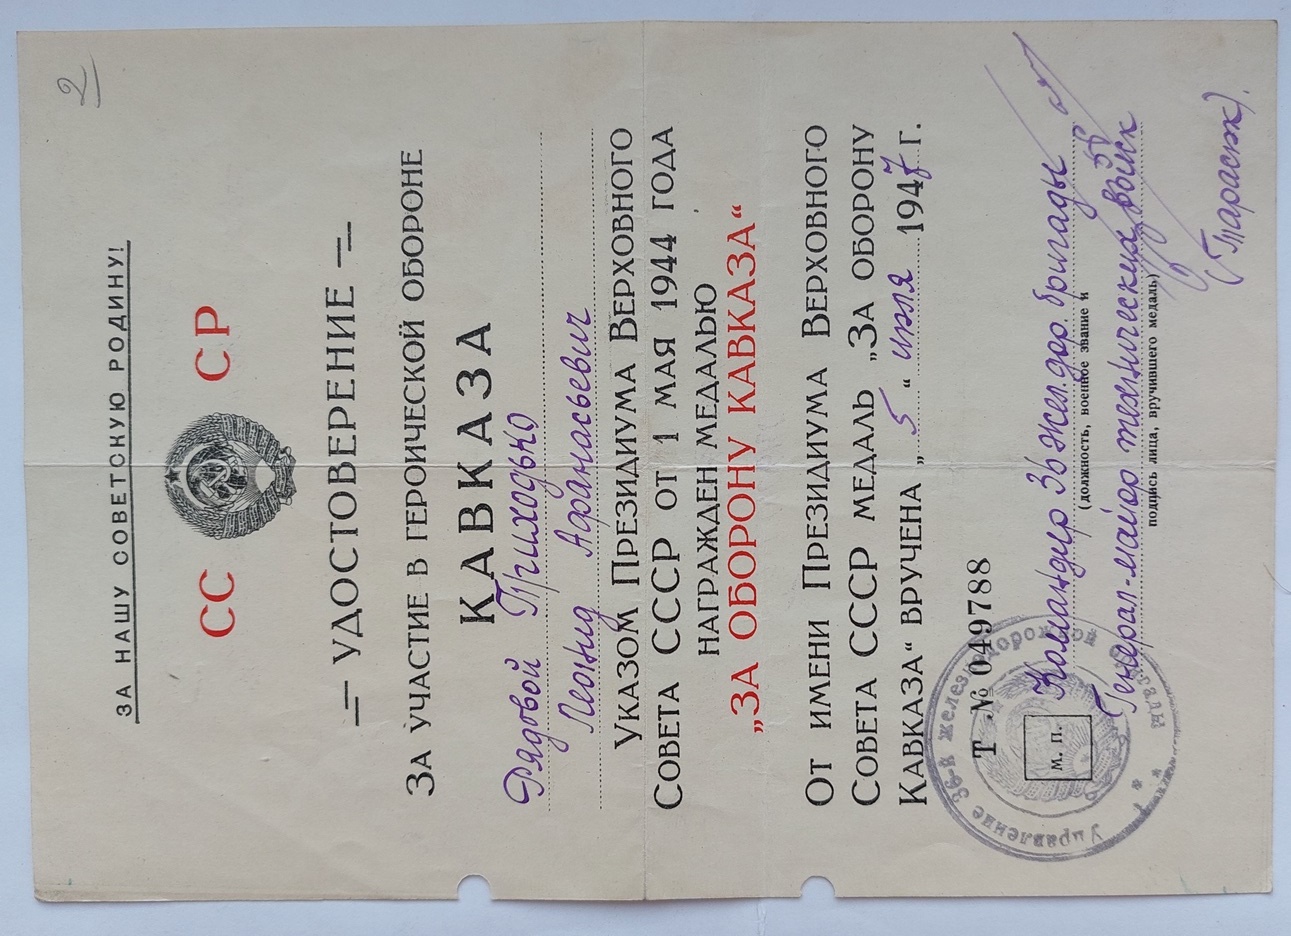 2
ЗА НАШУ СОВЕТСКУЮ РОДИНУ!
СС СР
УДОСТОВЕРЕНИЕ
ЗА УЧАСТИЕ В ГЕРОИЧЕСКОЙ ОБОРОНЕ
КАВКАЗА
Рядовой Приходько
Леонид Афанасьевич
УКАЗОМ ПРЕЗИДИУМА ВЕРХОВНОГО
СОВЕТА СССР ОТ 1 МАЯ 1944 ГОДА
НАГРАЖДЕН МЕДАЛЬЮ
„ЗА ОБОРОНУ КАВКАЗА“
ОТ ИМЕНИ ПРЕЗИДИУМА ВЕРХОВНОГО
СОВЕТА СССР МЕДАЛЬ „ЗА ОБОРОНУ
КАВКАЗА“ ВРУЧЕНА „5“ июля 1947 г.
Т № 049788
М. П.
Управление 36-й железнодорожной
Командир 36 жел.дор. бригады
(должность, военное звание и
Генерал-майор технических войск
подпись лица, вручившего медаль)